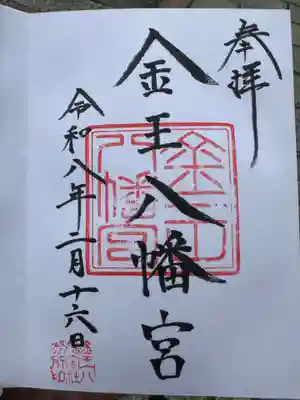 奉拝
金王八幡宮
令和八年二月十六日
金王八幡宮